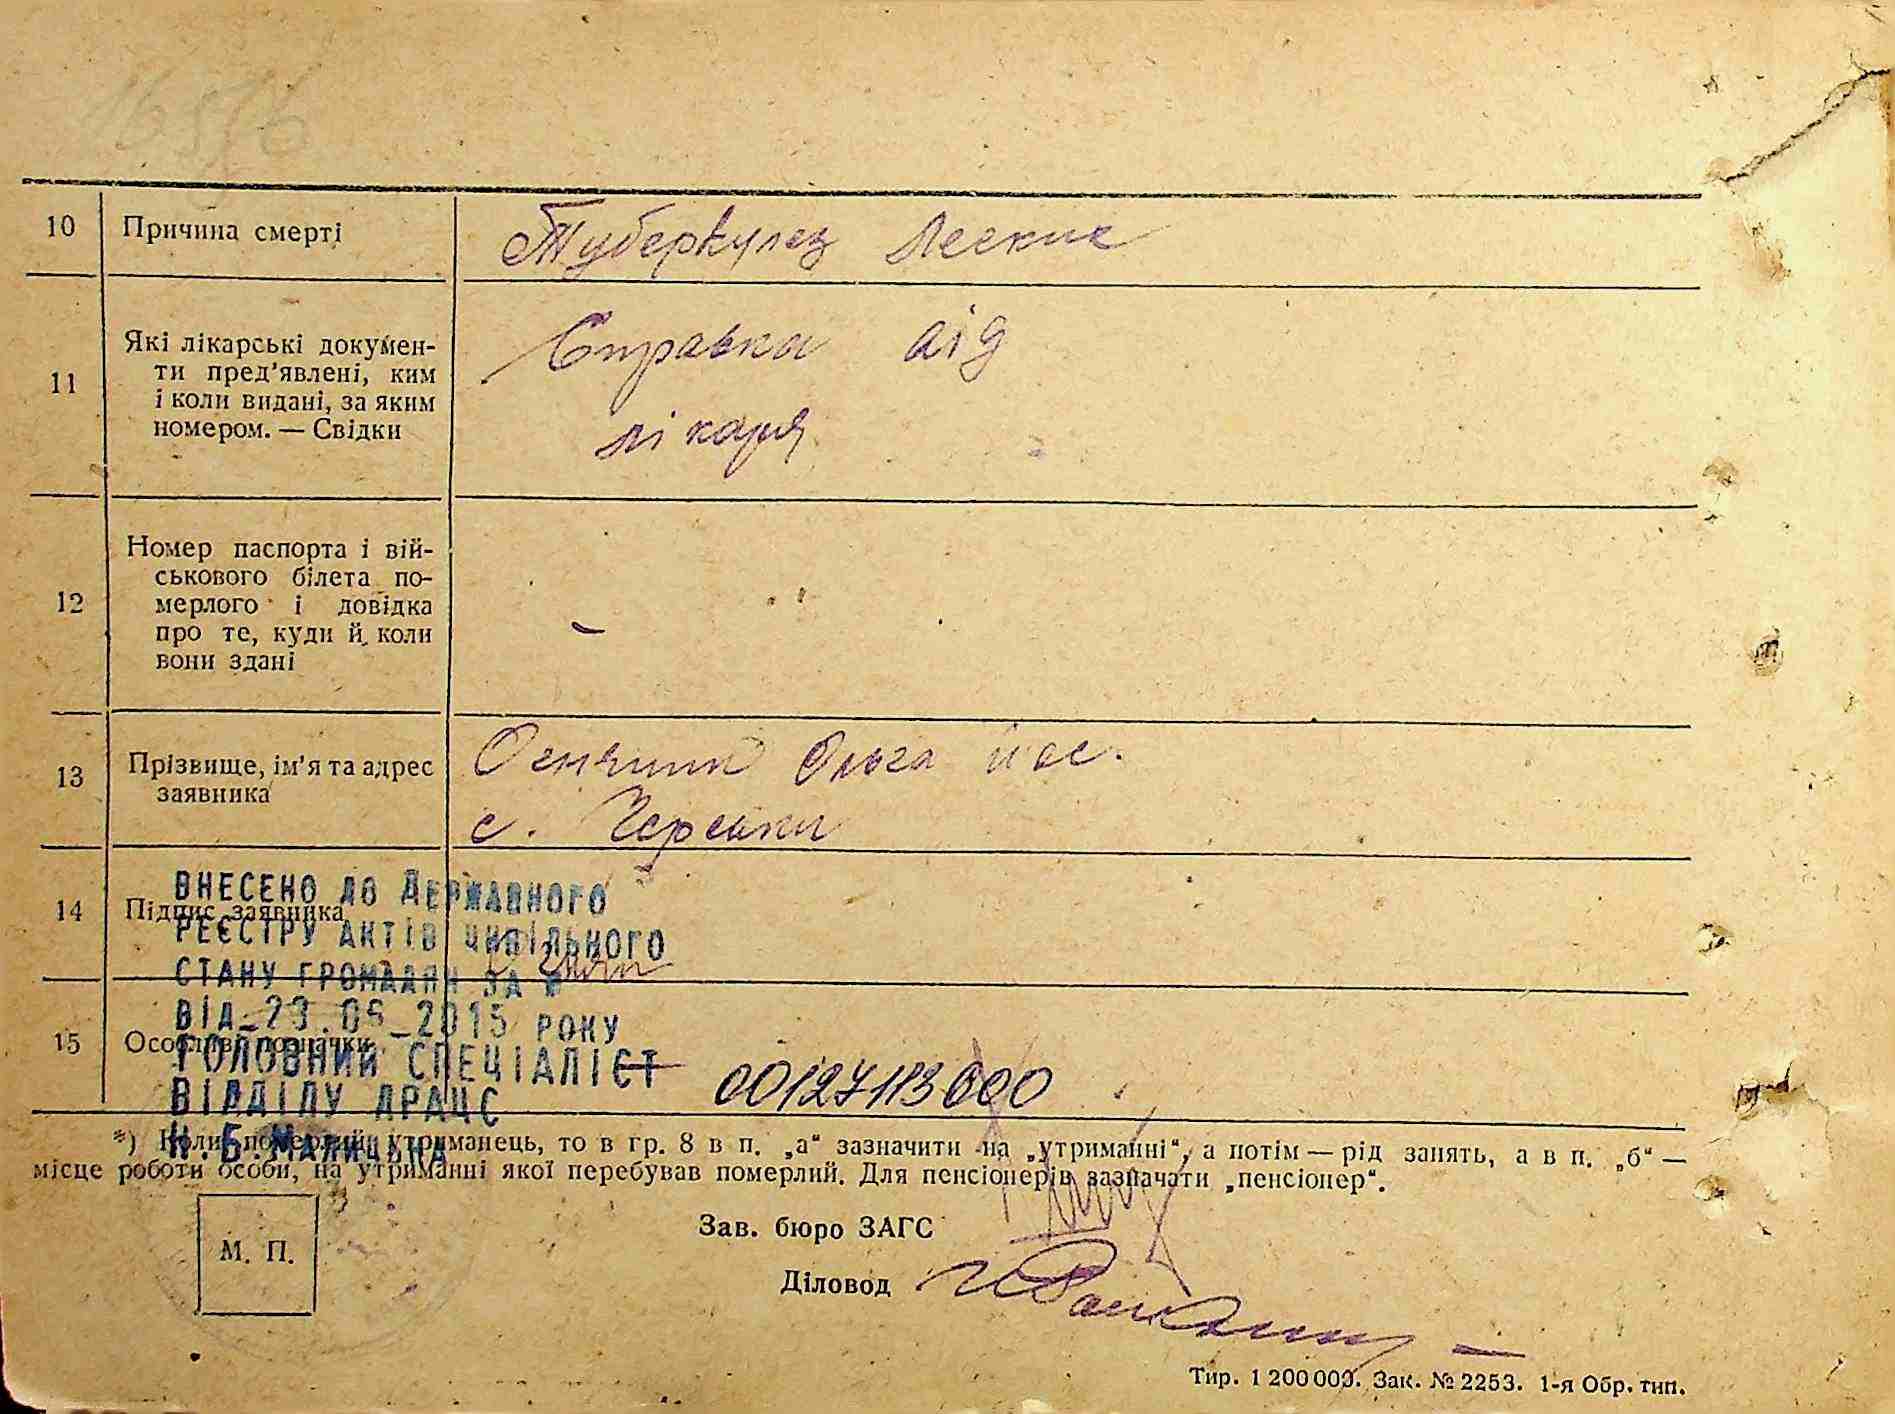 16576
10 Причина смерті Туберкулез Легких
11 Які лікарські докумен-
ти пред'явлені, ким
і коли видані, за яким
номером. — Свідки
Справка від
лікаря
12 Номер паспорта і вій-
ськового білета по-
мерлого і довідка
про те, куди й коли
вони здані
-
13 Прізвище, ім'я та адрес
заявника
Ольга Йос.
с.
14 Підпис заявника
15 Особливі позначки
ВНЕСЕНО ДО ДЕРЖАВНОГО
РЕЄСТРУ АКТІВ ЦИВІЛЬНОГО
СТАНУ ГРОМАДЯН ЗА №
ВІД 23.06 2015 РОКУ
ГОЛОВНИЙ СПЕЦІАЛІСТ
ВІДДІЛУ ДРАЦС
Н.Б.МАЛИЦЬКА
00127113600
*) Коли померлий утриманець, то в гр. 8 в п. „а“ зазначити на „утриманні“, а потім — рід занять, а в п. „б“ —
місце роботи особи, на утриманні якої перебував померлий. Для пенсіонерів зазначати „пенсіонер“.
М. П.
Зав. бюро ЗАГС
Діловод
Тир. 1 200 000. Зак. № 2253. 1-я Обр. тип.